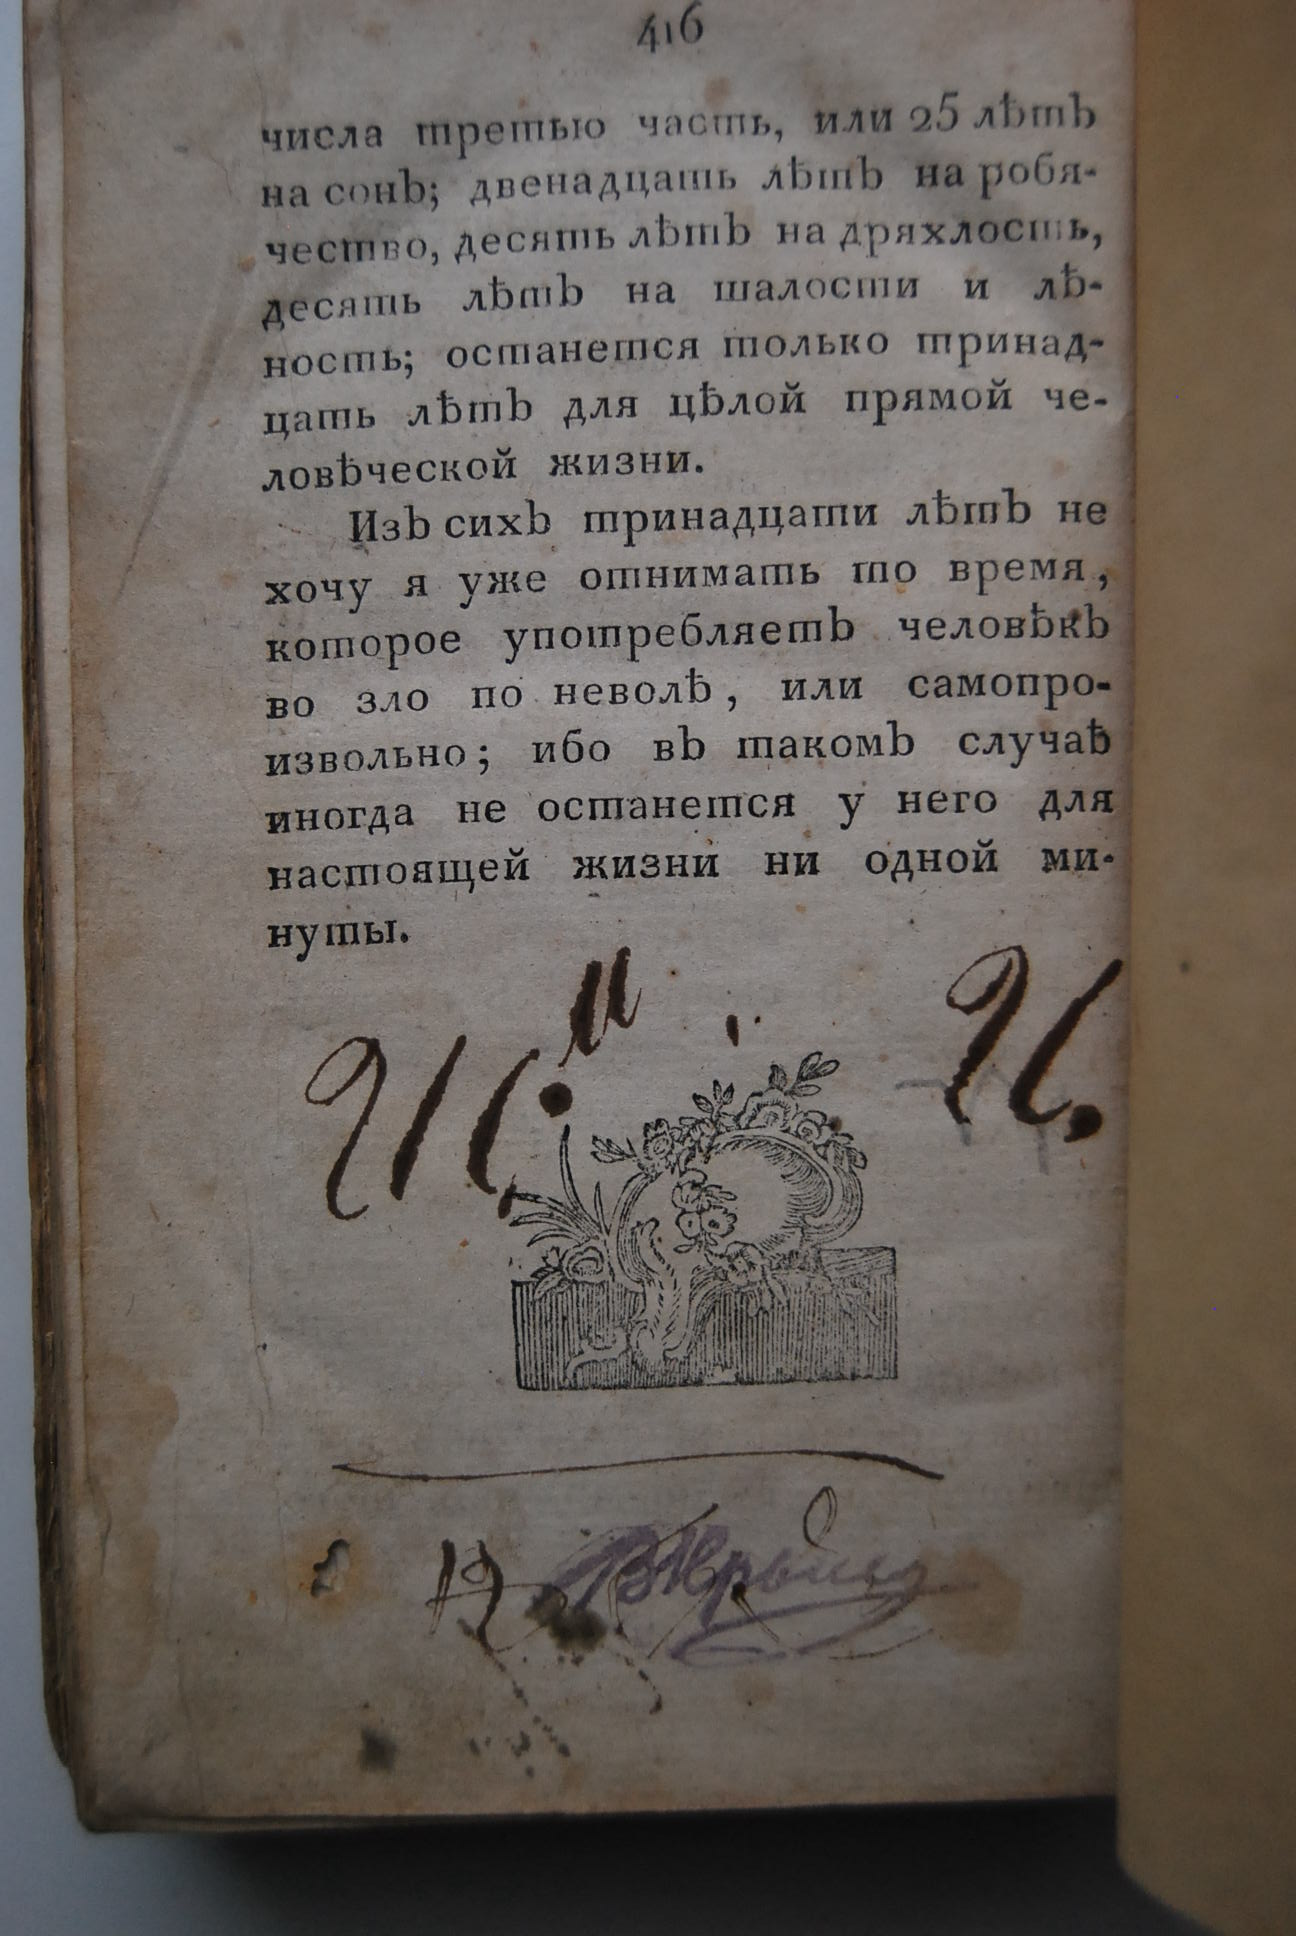 416
числа третью часть, или 25 лѣтъ
на сонъ; двенадцать лѣтъ на робя-
чество, десять лѣтъ на дряхлость,
десять лѣтъ на шалости и лѣ-
ность; останется только тринад-
цать лѣтъ для цѣлой прямой че-
ловѣческой жизни.
Изъ сихъ тринадцати лѣтъ не
хочу я уже отнимать то время,
которое употребляетъ человѣкъ
во зло по неволѣ, или самопро-
извольно; ибо въ такомъ случаѣ
иногда не останется у него для
настоящей жизни ни одной ми-
нуты.